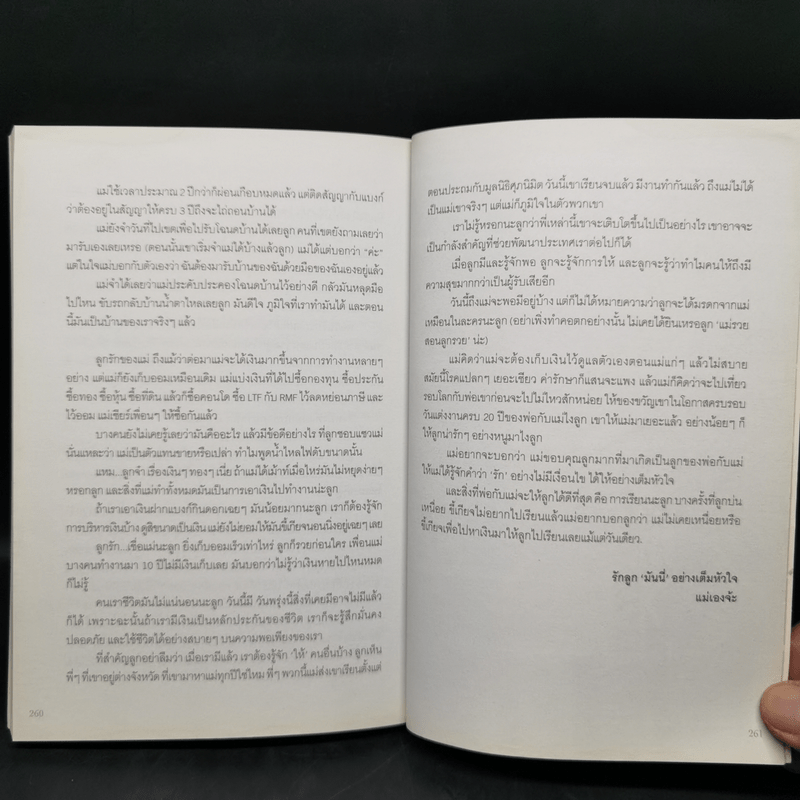 แม่ใช้เวลาประมาณ 2 ปีกว่าก็ผ่อนเกือบหมดแล้ว แต่ติดสัญญากับแบงก์
ว่าต้องอยู่ในสัญญาให้ครบ 3 ปีถึงจะไถ่ถอนบ้านได้
แม่ยังจำวันที่ไปเขตเพื่อไปรับโฉนดบ้านได้เลยลูก คนที่เขตยังถามเลยว่า
มารับเองเลยเหรอ (ตอนนั้นเขาเริ่มจำแม่ได้บ้างแล้วลูก) แม่ได้แต่บอกว่า “ค่ะ”
แต่ในใจแม่บอกกับตัวเองว่า ฉันต้องมารับบ้านของฉันด้วยมือของฉันเองอยู่แล้ว
แม่จำได้เลยว่าแม่ประคับประคองโฉนดบ้านไว้อย่างดี กลัวมันหลุดมือ
ไปไหน ขับรถกลับบ้านน้ำตาไหลเลยลูก มันดีใจ ภูมิใจที่เราทำมันได้ และตอน
นี้มันเป็นบ้านของเราจริงๆ แล้ว
ลูกรักของแม่ ถึงแม้ว่าต่อมาแม่จะได้เงินมากขึ้นจากการทำงานหลายๆ
อย่าง แต่แม่ก็ยังเก็บออมเหมือนเดิม แม่แบ่งเงินที่ได้ไปซื้อกองทุน ซื้อประกัน
ซื้อทอง ซื้อหุ้น ซื้อที่ดิน แล้วก็ซื้อคอนโด ซื้อ LTF กับ RMF ไว้ลดหย่อนภาษี และ
ไว้ออม แม่เชียร์เพื่อนๆ ให้ซื้อกันแล้ว
บางคนยังไม่เคยรู้เลยว่ามันคืออะไร แล้วมีข้อดีอย่างไร ที่ลูกชอบแซวแม่
นั่นแหละว่า แม่เป็นตัวแทนขายหรือเปล่า ทำไมพูดน้ำไหลไฟดับขนาดนั้น
แหม...ลูกจ๋า เรื่องเงินๆ ทองๆ เนี่ย ถ้าแม่ได้เม้าท์เมื่อไหร่มันไม่หยุดง่ายๆ
หรอกลูก และสิ่งที่แม่ทำทั้งหมดมันเป็นการเอาเงินไปทำงานน่ะลูก
ถ้าเราเอาเงินฝากแบงก์กินดอกเฉยๆ มันน้อยมากนะลูก เราก็ต้องรู้จัก
การบริหารเงินบ้าง ดูสิขนาดเป็นเงิน แม่ยังไม่ยอมให้มันขี้เกียจนอนนิ่งอยู่เฉยๆ เลย
ลูกรัก...เชื่อแม่นะลูก ยิ่งเก็บออมเร็วเท่าไหร่ ลูกก็รวยก่อนใคร เพื่อนแม่
บางคนทำงานมา 10 ปีไม่มีเงินเก็บเลย มันบอกว่าไม่รู้ว่าเงินหายไปไหนหมด
ก็ไม่รู้
คนเราชีวิตมันไม่แน่นอนนะลูก วันนี้มี วันพรุ่งนี้สิ่งที่เคยมีอาจไม่มีแล้ว
ก็ได้ เพราะฉะนั้นถ้าเรามีเงินเป็นหลักประกันของชีวิต เราก็จะรู้สึกมั่นคง
ปลอดภัย และใช้ชีวิตได้อย่างสบายๆ บนความพอเพียงของเรา
ที่สำคัญลูกอย่าลืมว่า เมื่อเรามีแล้ว เราต้องรู้จัก ‘ให้’ คนอื่นบ้าง ลูกเห็น
พี่ๆ ที่เขาอยู่ต่างจังหวัด ที่เขามาหาแม่ทุกปีใช่ไหม พี่ๆ พวกนี้แม่ส่งเขาเรียนตั้งแต่
260
ตอนประถมกับมูลนิธิศุภนิมิต วันนี้เขาเรียนจบแล้ว มีงานทำกันแล้ว ถึงแม่ไม่ได้
เป็นแม่เขาจริงๆ แต่แม่ก็ภูมิใจในตัวพวกเขา
เราไม่รู้หรอกนะลูกว่าพี่เหล่านี้เขาจะเติบโตขึ้นไปเป็นอย่างไร เขาอาจจะ
เป็นกำลังสำคัญที่ช่วยพัฒนาประเทศเราต่อไปก็ได้
เมื่อลูกมีและรู้จักพอ ลูกจะรู้จักการให้ และลูกจะรู้ว่าทำไมคนให้ถึงมี
ความสุขมากกว่าเป็นผู้รับเสียอีก
วันนี้ถึงแม่จะพอมีอยู่บ้าง แต่ก็ไม่ได้หมายความว่าลูกจะได้มรดกจากแม่
เหมือนในละครนะลูก (อย่าเพิ่งทำคอตกอย่างนั้น ไม่เคยได้ยินเหรอลูก ‘แม่รวย
สอนลูกรวย’ น่ะ)
แม่คิดว่าแม่จะต้องเก็บเงินไว้ดูแลตัวเองตอนแม่แก่ๆ แล้วไม่สบาย
สมัยนี้โรคแปลกๆ เยอะเชียว ค่ารักษาก็แสนจะแพง แล้วแม่ก็คิดว่าจะไปเที่ยว
รอบโลกกับพ่อเขาก่อนที่จะไปไม่ไหวสักหน่อย ให้ของขวัญเขาในโอกาสครบรอบ
วันแต่งงานครบ 20 ปีของพ่อกับแม่ไงลูก เขาให้แม่มาเยอะแล้ว อย่างน้อยๆ ก็
ให้ลูกน่ารักๆ อย่างหนูมาไงลูก
แม่อยากจะบอกว่า แม่ขอบคุณลูกมากที่มาเกิดเป็นลูกของพ่อกับแม่
ให้แม่ได้รู้จักคำว่า ‘รัก’ อย่างไม่มีเงื่อนไข ได้ให้อย่างเต็มหัวใจ
และสิ่งที่พ่อกับแม่จะให้ลูกได้ดีที่สุด คือ การเรียนนะลูก บางครั้งที่ลูกบ่น
เหนื่อย ขี้เกียจไม่อยากไปเรียนแล้วแม่อยากบอกลูกว่า แม่ไม่เคยเหนื่อยหรือ
ขี้เกียจเพื่อไปหาเงินมาให้ลูกไปเรียนเลยแม้แต่วันเดียว.
รักลูก ‘มันนี่’ อย่างเต็มหัวใจ
แม่เองจ้ะ
261